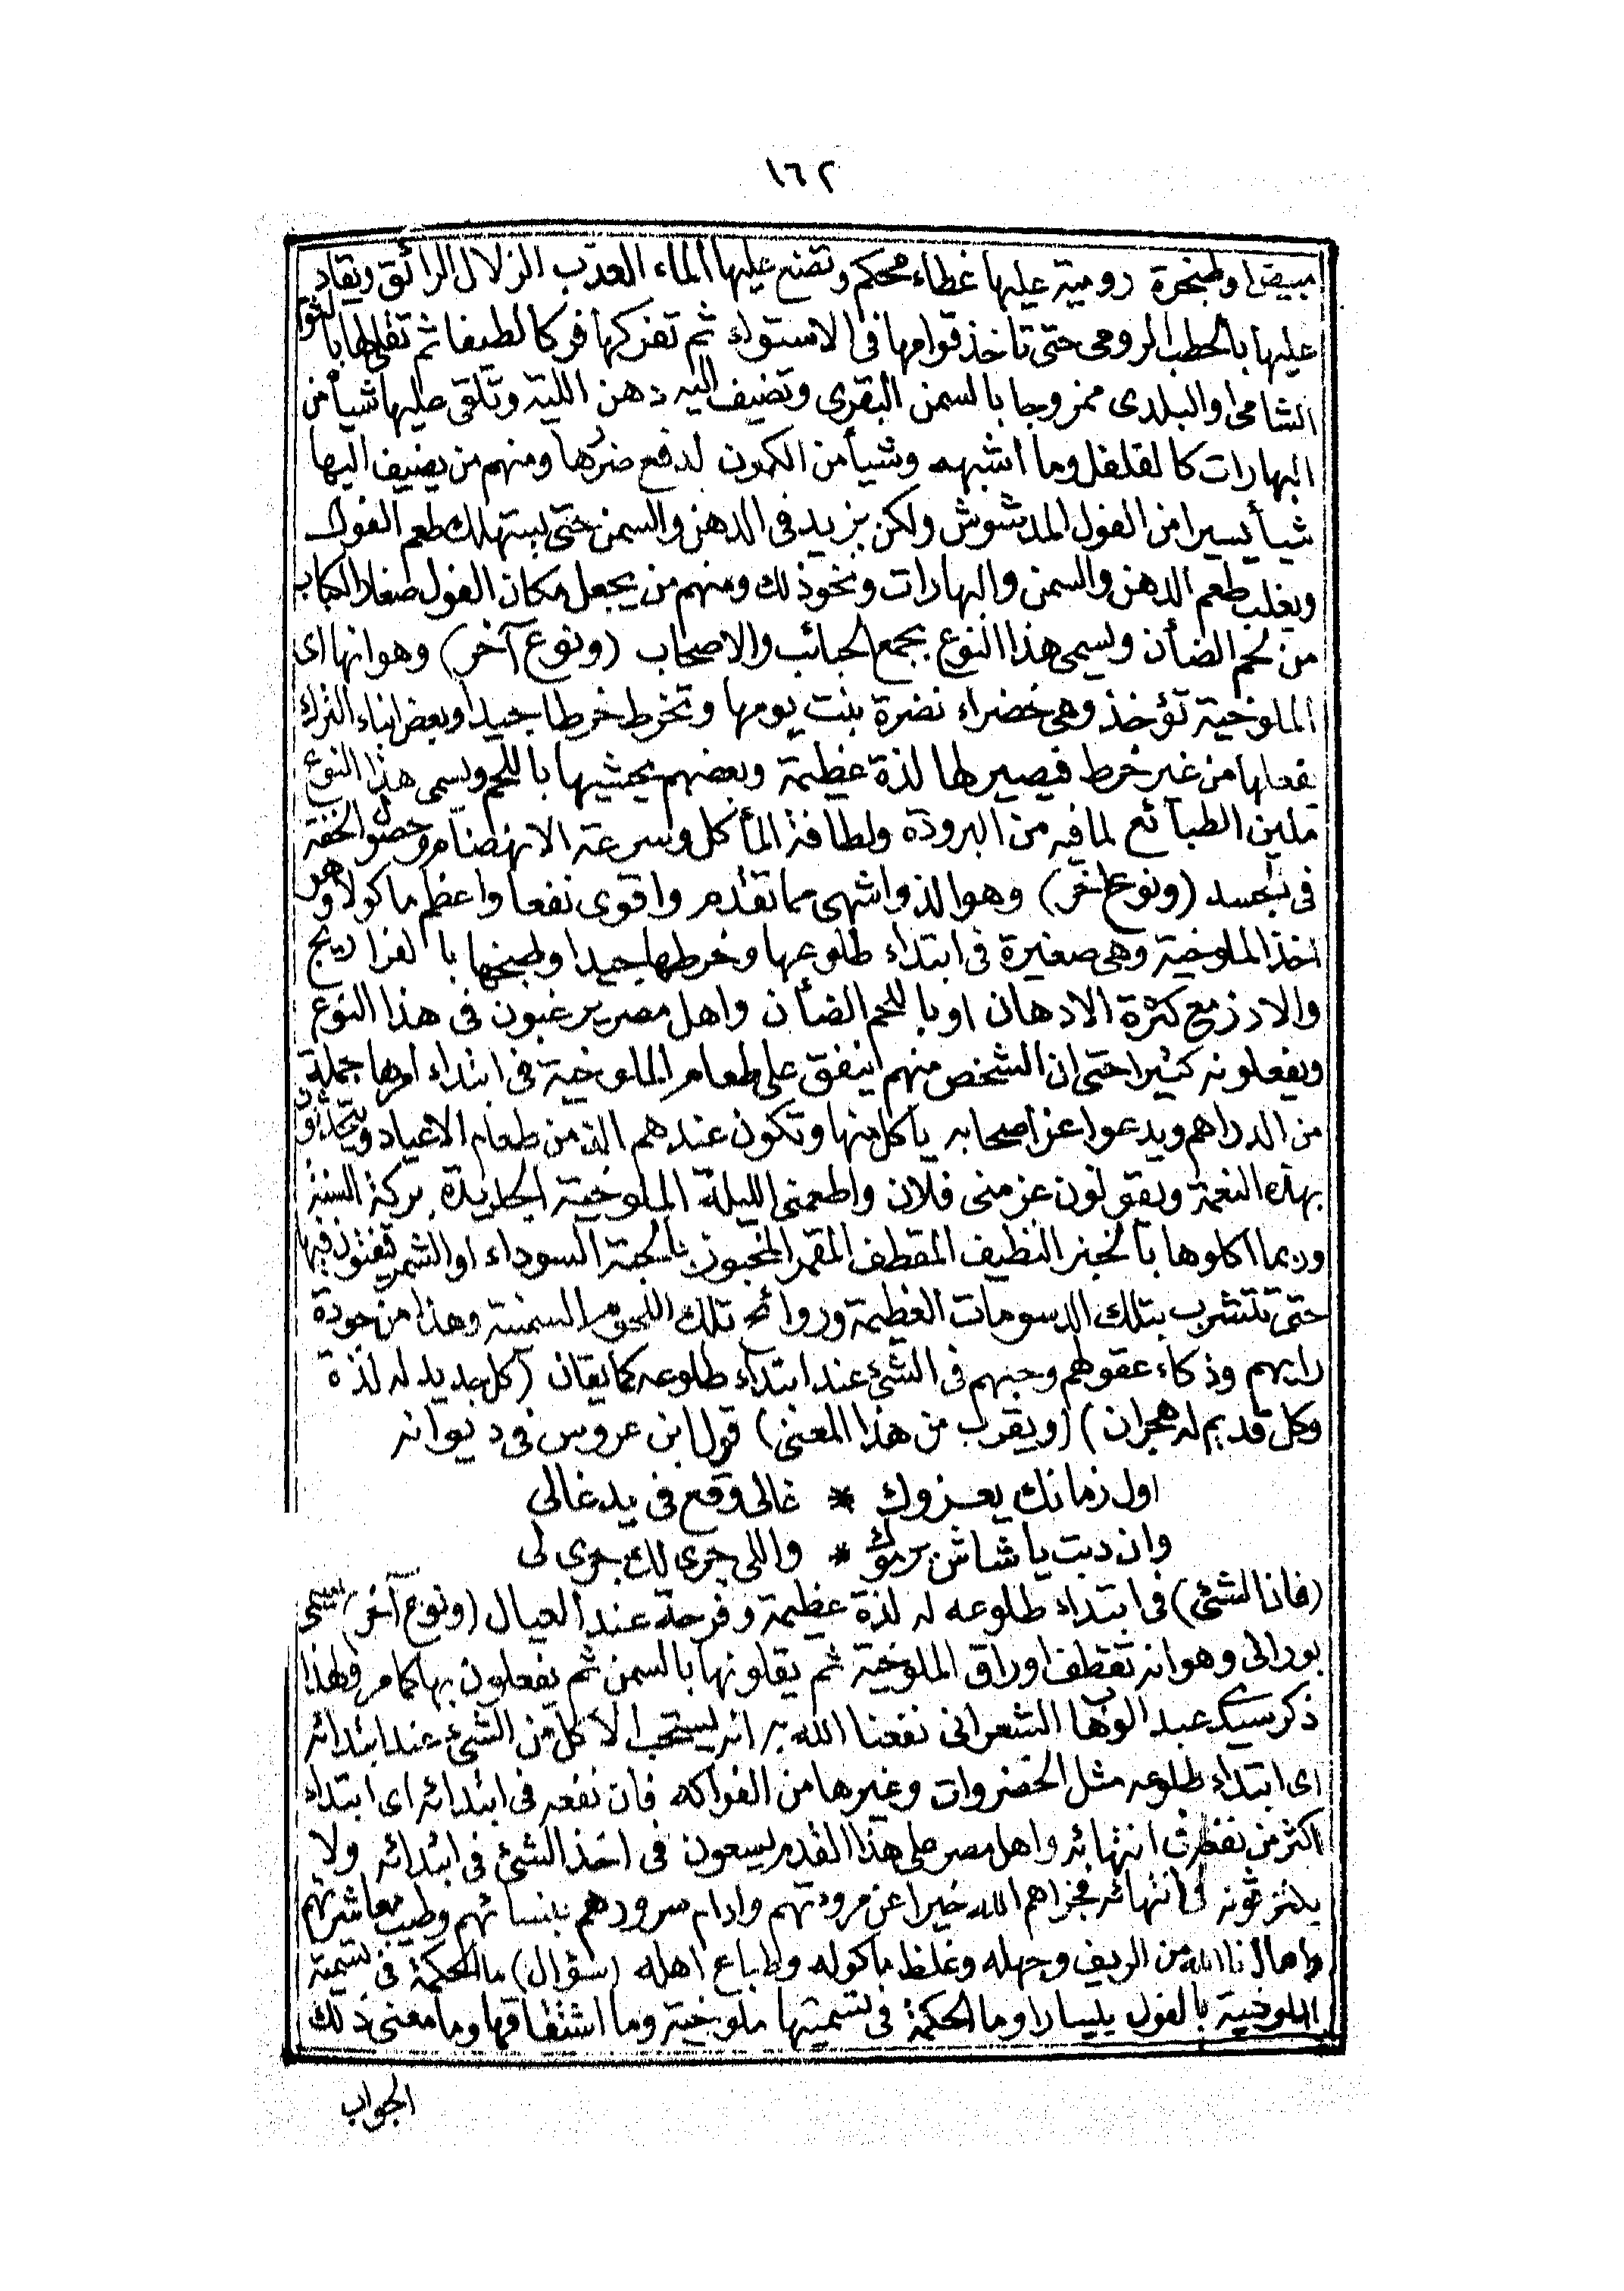 ١٦٢
مبيض او طنجرة رومية عليها غطاء محكم وتضع عليها الماء العذب الزلال الرائق ويقاد
عليها بالحطب الرومى حتى تاخذ قوامها فى الاستواء ثم تفركها فركا لطيفا ثم تقليها بالثوم
الشامى او البلدى ممزوجا بالسمن البقرى وتضيف اليه دهن اللية وتلقى عليها شيأ من
البهارات كالفلفل وما اشبهه وشيأ من الكمون لدفع ضررها ومنهم من يضيف اليها
شيأ يسيرا من الفول المدشوش ولكن يزيد فى الدهن والسمن حتى يستهلك طعم الفول
ويغلب طعم الدهن والسمن والبهارات ونحو ذلك ومنهم من يجعل مكان الفول صغار الكباب
من لحم الضأن ويسمى هذا النوع بجمع الحبائب والاصحاب (ونوع آخر) وهو انها اى
الملوخية تؤخذ وهى خضراء نضرة بنت يومها وتخرط خرطا جيدا وبعض ابناء الترك
يفعلها من غير خرط فيصير لها لذة عظيمة وبعضهم يحشيها باللحم ويسمى هذا النوع
ملين الطبائع لما فيه من البرودة ولطافة المأكل وسرعة الانهضام وحصول الخفة
فى الجسد (ونوع اخر) وهو الذ واشهى مما تقدم واقوى نفعا واعظم ماكولا وهو
اخذ الملوخية وهى صغيرة فى ابتداء طلوعها وخرطها جيدا وطبخها بالفراريج
والارز مع كثرة الادهان او باللحم الضأن واهل مصر يرغبون فى هذا النوع
ويفعلونه كثيرا حتى ان الشخص منهم ينفق على طعام الملوخية فى ابتداء امرها جملة
من الدراهم ويدعوا عز اصحابه ياكل منها وتكون عندهم الذ من طعام الاعياد ويتحدثون
بهذه النعمة ويقولون عزمنى فلان واطعمنى الليلة الملوخية الجديدة بركة السنة
وربما اكلوها بالخبز النظيف المقطف المقمر المخبوز بالحبة السوداء او الشمر فيفتون فيها
حتى تتشرب بتلك الدسومات العظيمة وروائح تلك اللحوم السمينة وهذا من جودة
رايهم وذكاء عقولهم وحبهم فى الشئ عند ابتداء طلوعه كما يقال (كل جديد له لذة
وكل قديم له هجران) (ويقرب من هذا المعنى) قول ابن عروس فى ديوانه
اول زمانك يعزوك * غالى وقع فى يد غالى
وان دبت يا شاش يرموك * واللى جرى لك جرى لى
(فاذا الشئ) فى ابتداء طلوعه له لذة عظيمة وفرحة عند العيال (ونوع آخر) يسمى
بورانى وهو انه تقطف اوراق الملوخية ثم يقلونها بالسمن ثم يفعلون بها كما مر ولهذا
ذكر سيدى عبد الوهاب الشعرانى نفعنا الله به انه يستحب الاكل من الشئ عند ابتدائه
اى ابتداء طلوعه مثل الخضروات وغيرها من الفواكه فان نفعه فى ابتدائه اى ابتداء
اكثر من نفعه فى انتهائه واهل مصر على هذا القدم يسعون فى اخذ الشئ فى ابتدائه ولا
يكترثونه فى انتهائه فجزاهم الله خيرا عن مروءتهم وادام سرورهم بنسائهم وطيب معاشرتهم
واحالنا الله من الريف وجهله وغلظ ماكوله وطباع اهله (سؤال) ما الحكمة فى تسمية
الملوخية بالفول بيسارا وما الحكمة فى تسميتها ملوخية وما اشتقاقها وما معنى ذلك
الجواب